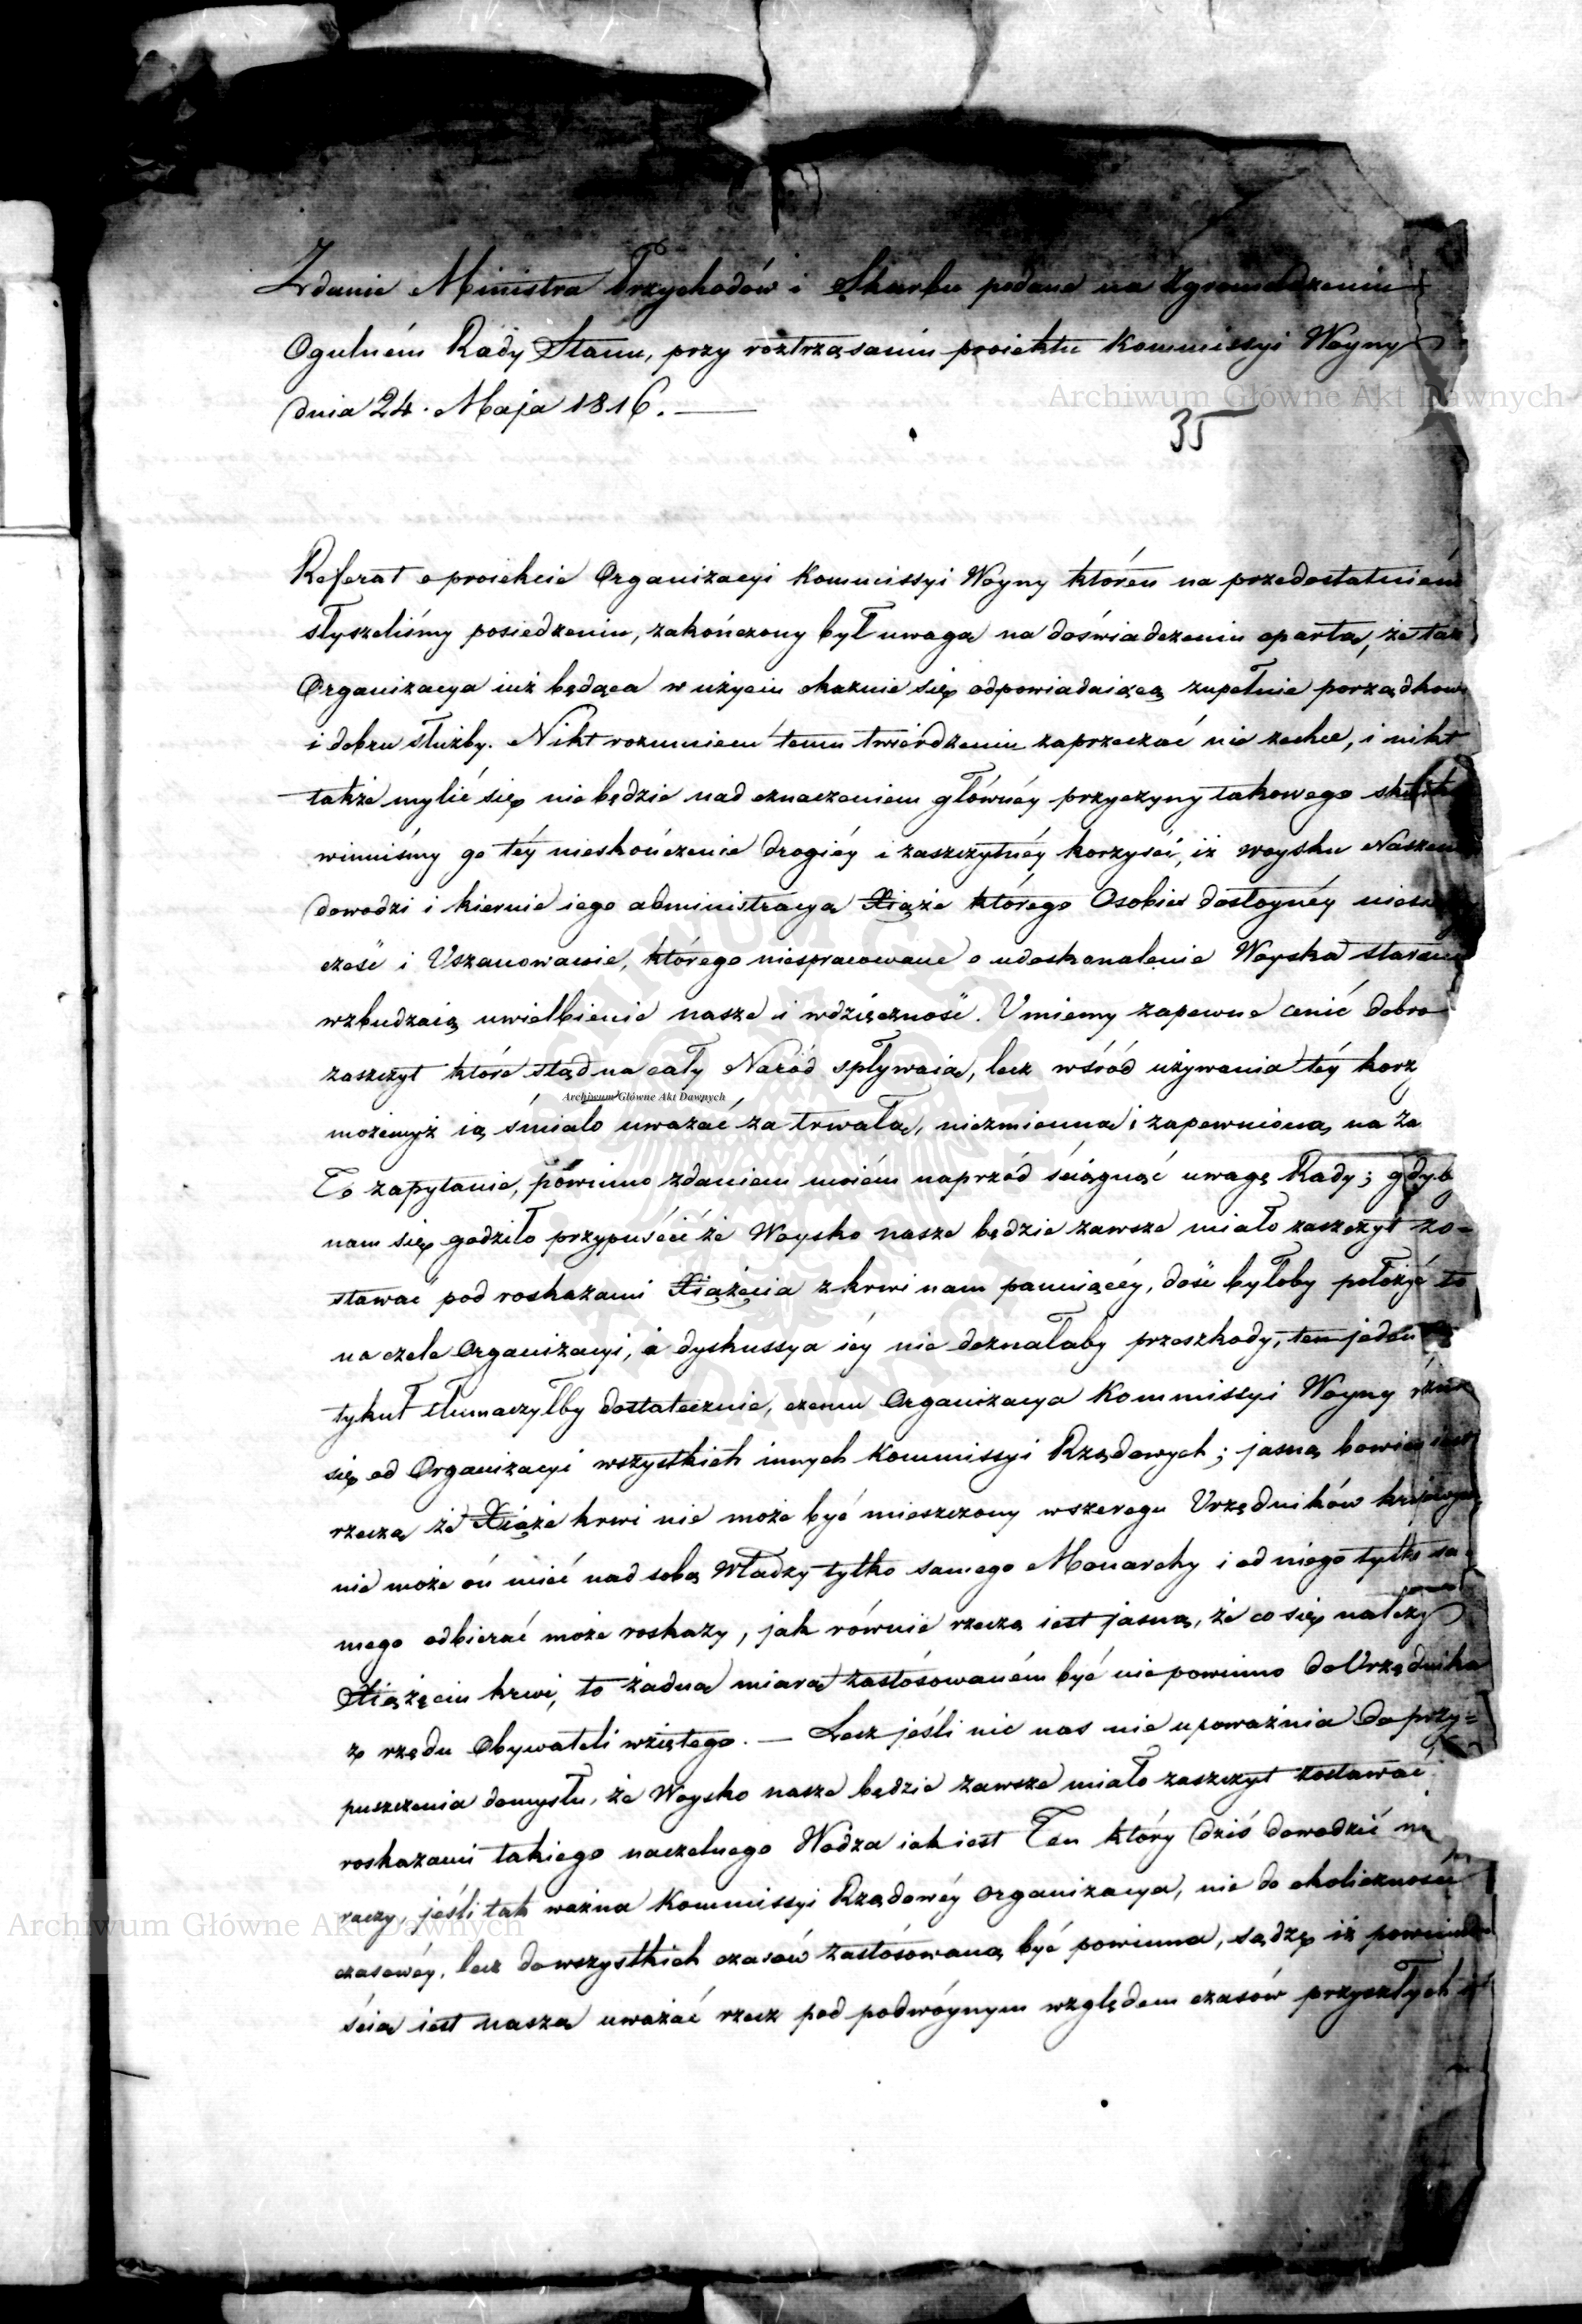 Zdanie Ministra Przychodów i Skarbu podane na Zgromadzeniu
Ogulném Rady Stanu, przy roztrząsaniu proiektu Kommissyi Woyny
dnia 24. Maja 1816.
Archiwum Główne Akt Dawnych
35
Referat o proiekcie Organizacyi Kommissyi Woyny któren na przedostatniém
słyszeliśmy posiedzeniu, zakończony był uwagą na doświadczeniu opartą, że taż
Organizacya iuż będąca w użyciu okazuie się odpowiadaiącą zupełnie porządkowi
i dobru służby. Nikt rozumiem temu twierdzeniu zaprzeczać nie zechce, i nikt
także mylić się nie będzie nad oznaczeniem główney przyczyny takowego skutku
winniśmy go téy nieskończenie drogiéy i zaszczytnéy korzyści, iż woysku Naszemu
dowodzi i kieruie iego administracyą Xiąże którego Osobie dostoynéy
cześć i Uszanowanie, którego niespracowane o udoskonalenie Woyska
wzbudzaią uwielbienie nasze i wdzięczność. Umiemy zapewne cenić dobro
zaszczyt które stąd na cały Naród spływaią, lecz wśród używania téy korz
Archiwum Główne Akt Dawnych
możemyż ią śmiało uważać za trwałą, niezmienną i zapewnioną na za
To zapytanie, powinno zdaniem moiém naprzód ściągnąć uwagę Rady; gdyby
nam się godziło przypuścić że Woysko nasze będzie zawsze miało zaszczyt zo=
stawać pod roskazami Xiążęcia z krwi nam panuiącéy, dość byłoby położyć to
na czele Organizacyi, a dyskussya iéy nie doznałaby przeszkody, ten jeden
tykuł tłumaczyłby dostatecznie, czemu Organizacya Kommissyi Woyny różni
się od Organizacyi wszystkich innych Kommissyi Rządowych; jasną bowiem iest
rzeczą że Xiąże krwi nie może być mieszczony w szeregu Urzędników krajowych,
nie może on mieć nad sobą Władzy tylko samego Monarchy i od niego tylko sa=
mego odbierać może roskazy, jak równie rzeczą iest jasną, że co się należy
Xiążęciu krwi, to żadną miarą zastósowaném być nie powinno do Urzędnika
z rzędu Obywateli wziętego. — Lecz jeśli nic nas nie upoważnia do przy=
puszczenia domysłu, że Woysko nasze będzie zawsze miało zaszczyt zostawać
roskazami takiego naczelnego Wodza iak iest Ten który dziś dowodzić
raczy, jeśli tak ważna Kommissyi Rządowéy Organizacya, nie do okoliczności
Archiwum Główne Akt Dawnych
czasowéy, lecz do wszystkich czasów zastósowaną być powinna, sądzę iż powinno=
ścią iest naszą uważać rzecz pod podwóynym względem czasów przyszłych